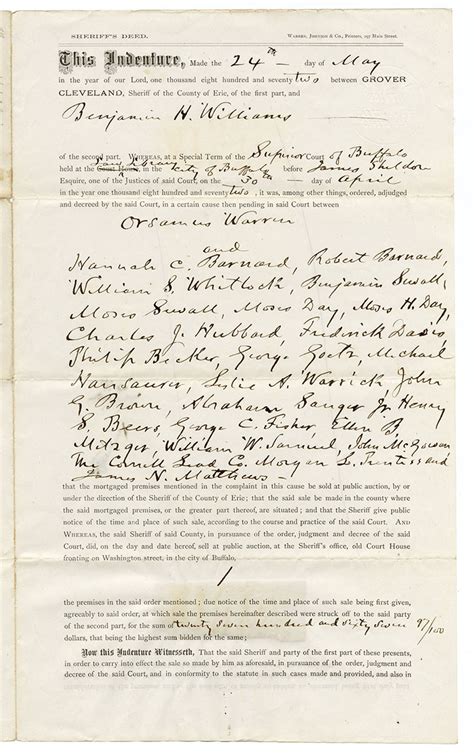 SHERIFF'S DEED. WARREN, JOHNSON & CO., Printers, 197 Main Street.
This Indenture, Made the 24th day of May
in the year of our Lord, one thousand eight hundred and seventy two between GROVER
CLEVELAND, Sheriff of the County of Erie, of the first part, and
Benjamin H. Williams
of the second part. WHEREAS, at a Special Term of the Superior Court of Buffalo
held at the Court House, in the City of Buffalo before James Sheldon
Esquire, one of the Justices of said Court, on the 30th day of April
in the year one thousand eight hundred and seventy two, it was, among other things, ordered, adjudged
and decreed by the said Court, in a certain cause then pending in said Court between
Orsamus Warren
and
Hannah C. Barnard, Robert Barnard,
William S. Whitlock, Benjamin Sewall,
Moses Sewall, Moses Day, Moses H. Day,
Charles J. Hubbard, Frederick Davis,
Philip Becker, George Goetz, Michael
Hansauer, Leslie A. Warrick, John
G. Brown, Abraham Sanger Jr. Henry
S. Beers, George C. Fisher, Ellen B.
Metzger, William W. Samuel, John McGowan
The Cornell Lead Co. Morgan L. Prentiss and
James N. Matthews
that the mortgaged premises mentioned in the complaint in this cause be sold at public auction, by or
under the direction of the Sheriff of the County of Erie; that the said sale be made in the county where
the said mortgaged premises, or the greater part thereof, are situated; and that the Sheriff give public
notice of the time and place of such sale, according to the course and practice of the said Court. AND
WHEREAS, the said Sheriff of said County, in pursuance of the order, judgment and decree of the said
Court, did, on the day and date hereof, sell at public auction, at the Sheriff's office, old Court House
fronting on Washington street, in the city of Buffalo,
the premises in the said order mentioned; due notice of the time and place of such sale being first given,
agreeably to said order, at which sale the premises hereinafter described were struck off to the said party
of the second part, for the sum of twenty seven hundred and sixty seven 97/100
dollars, that being the highest sum bidden for the same;
Now this Indenture Witnesseth, That the said Sheriff and party of the first part of these present,
in order to carry into effect the sale so made by him as aforesaid, in pursuance of the order, judgment and
decree of the said Court, and in conformity to the statute in such cases made and provided, and also in